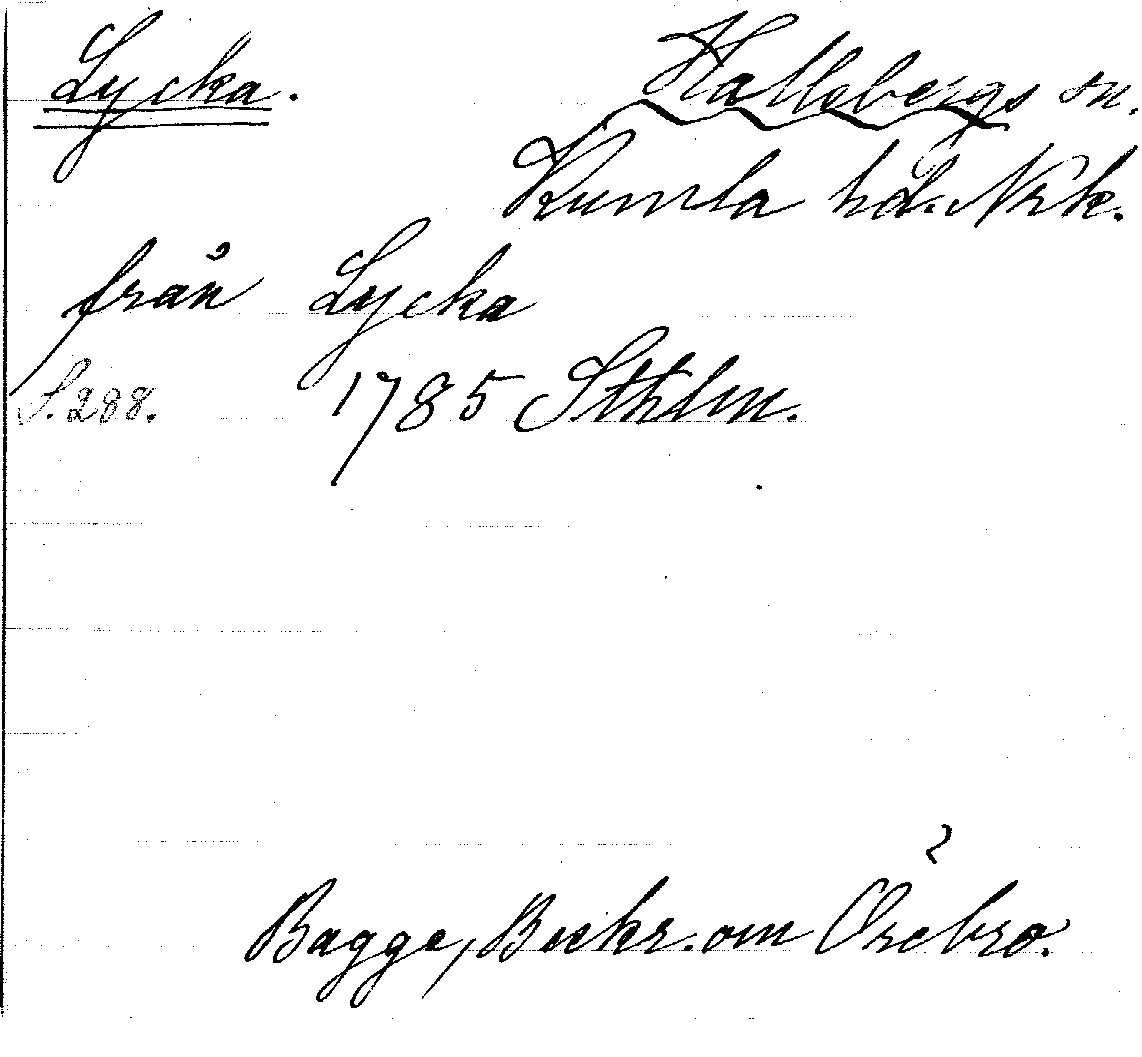 Lycka. Hallsbergs sn.
Kumla hd. Nrk.
från Lycka
S. 288. 1785 Sthlm.
Bagge, Beskr. om Örebro.